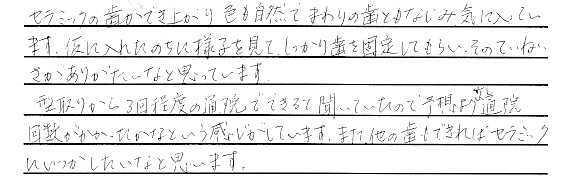 セラミックの歯ができ上がり色も自然でまわりの歯ともなじみ気に入ってい
ます。仮に入れたのちに様子を見て、しっかり歯を固定してもらい、そのていねい
さがありがたいなと思っています。
型取りから3回程度の通院でできると聞いていたので予想より通院
回数がかかったかなという感じがしています。また他の歯もできればセラミック
にいつかしたいなと思います。